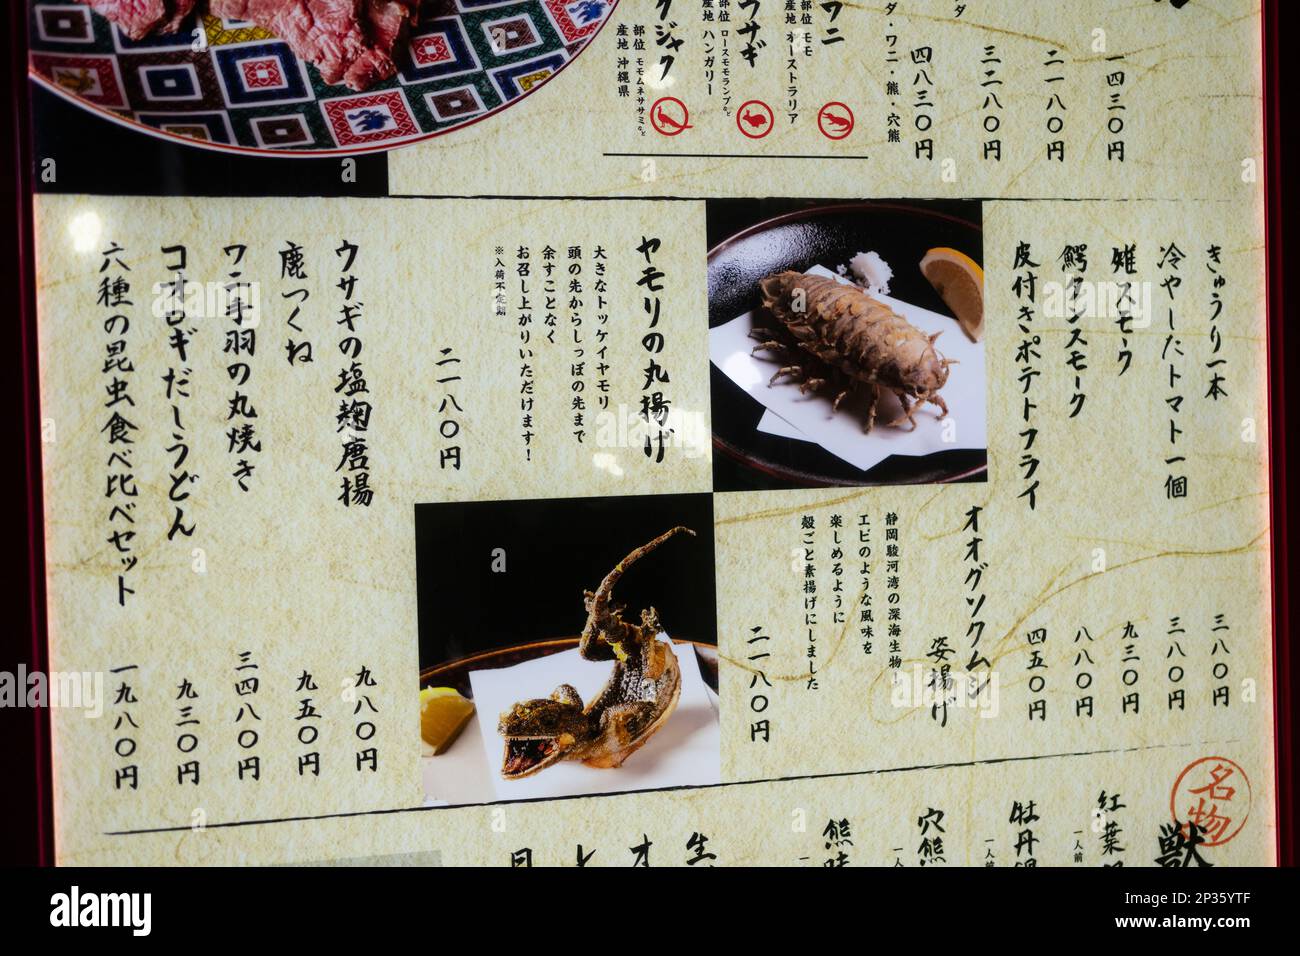 一四三〇円
二一八〇円
三二八〇円
ダ・ワニ・熊・穴熊
四八三〇円
ワニ
部位 モモ
産地 オーストラリア
ウサギ
部位 ロースモモランプなど
産地 ハンガリー
クジャク
部位 モモムネササミなど
産地 沖縄県
きゅうり一本
三八〇円
冷やしたトマト一個
三八〇円
雉スモーク
九三〇円
鰐タンスモーク
八八〇円
皮付きポテトフライ
四五〇円
オオグソクムシ
姿揚げ
静岡駿河湾の深海生物!
エビのような風味を
楽しめるように
殻ごと素揚げにしました
二一八〇円
ヤモリの丸揚げ
大きなトッケイヤモリ
頭の先からしっぽの先まで
余すことなく
お召し上がりいただけます!
※入荷不定期
二一八〇円
ウサギの塩麹唐揚
九八〇円
鹿つくね
九五〇円
ワニ手羽の丸焼き
三四八〇円
コオロギだしうどん
九三〇円
六種の昆虫食べ比べセット
一九八〇円
名物
獣
紅葉
一人前
牡丹
一人前
穴熊
熊
生
オ
alamy
Image ID: 2P35YTF
www.alamy.com